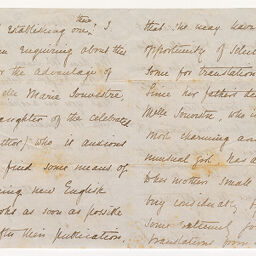 Establishing one? this I
enquiring about this
for the advantage of
Marie Souvestre,
daughter of the celebrated
author) who is anxious
find some means of
new English
books as soon as possible
after their publication.
that she may have
opportunity of select
some for translation
Since her father's de
Mlle Souvestre, who i
most charming and
unusual girl has a
her mother's small
considerably by
some extremely
translations from